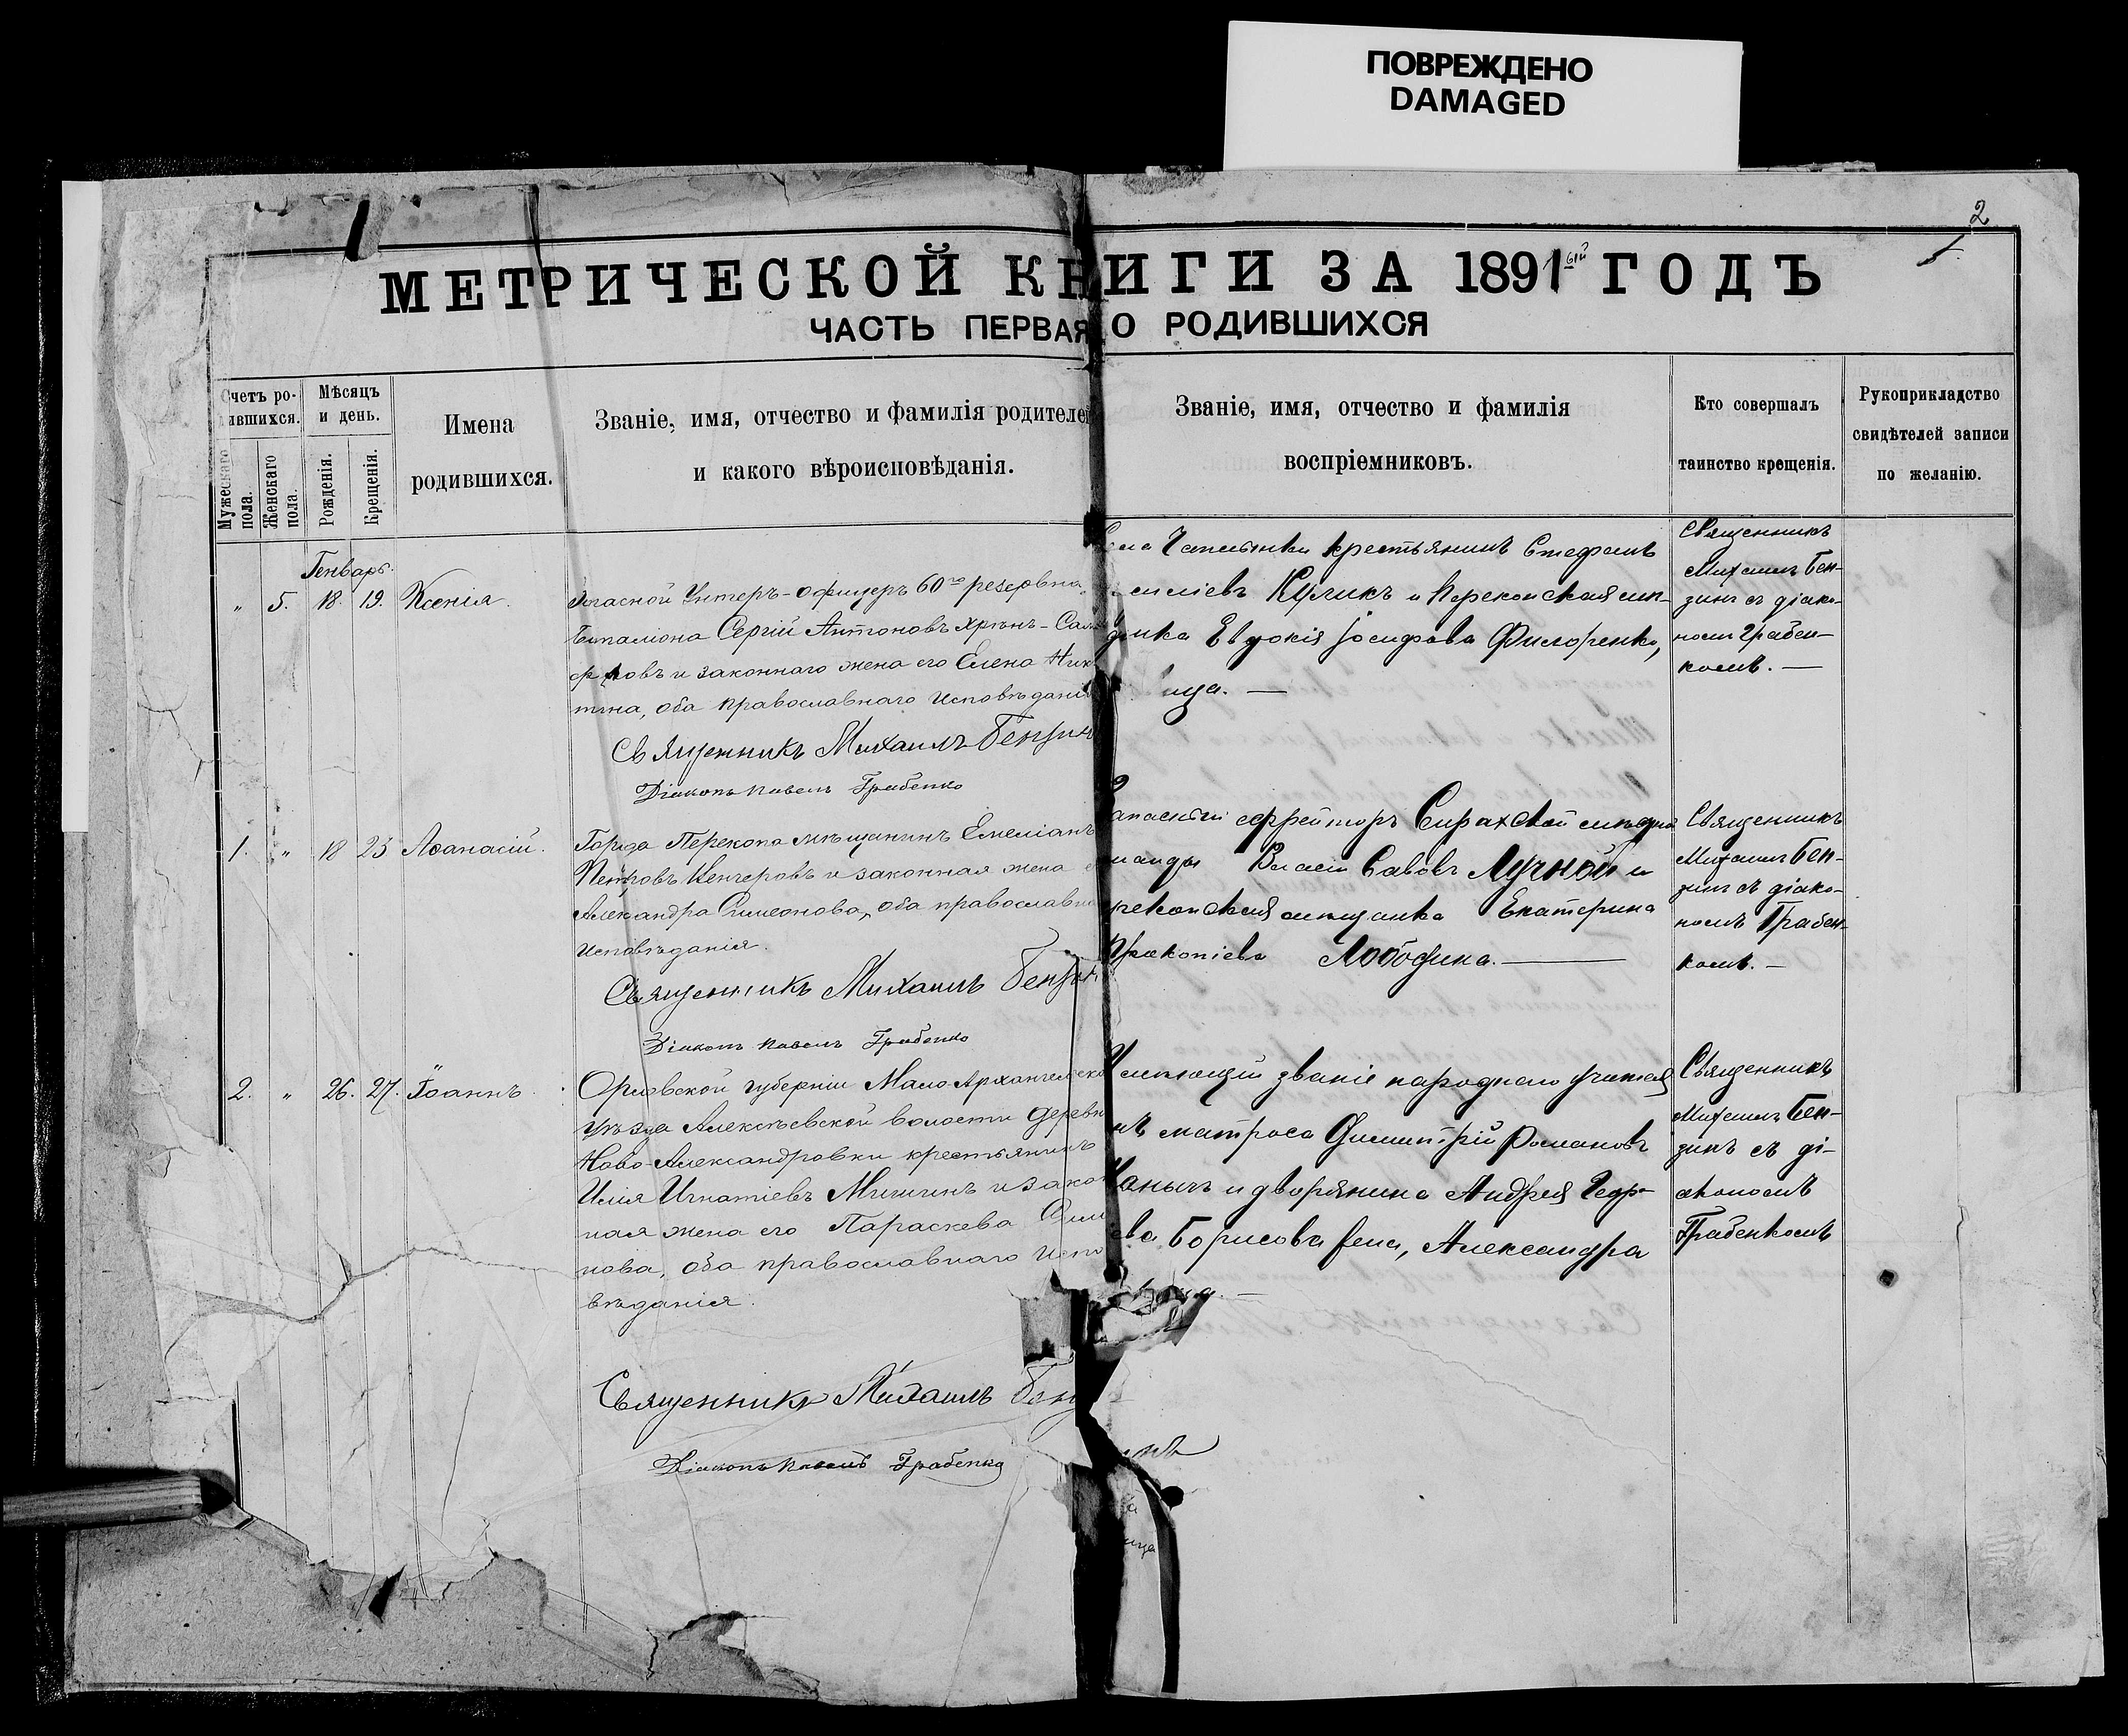 ПОВРЕЖДЕНО
DAMAGED
2
МЕТРИЧЕСКОЙ КНИГИ ЗА 1891ый ГОДЪ
ЧАСТЬ ПЕРВАЯ О РОДИВШИХСЯ
Счетъ ро-
дившихся.
Мужескаго пола.
Женскаго пола.
Мѣсяцъ
и день.
Рожденія.
Крещенія.
Имена
родившихся.
Званіе, имя, отчество и фамилія родителей
и какого вѣроисповѣданія.
Званіе, имя, отчество и фамилія
воспріемниковъ.
Кто совершалъ
таинство крещенія.
Рукоприкладство
свидѣтелей записи
по желанію.
Генварь.
" 5. 18. 19. Ксенія.
Запасной Унтеръ-офицеръ 60го резервна
баталіона Сергій Антоновъ Хрѣнъ-
и законнаго жена его Елена Ники
тина, оба православнаго исповѣдані
Священникъ Михаилъ Бензинъ
Діаконъ Павелъ Грабенко
крестьянинъ Стефанъ
Куликъ и Перекопская мѣ-
Евдокія Іосифова
ица. —
Священникъ
Михаилъ Бен-
зинъ съ діако-
номъ Грабен-
комъ. —
1. " 18 23 Аѳанасій.
Города Перекопа мѣщанинъ Емеліанъ
Петровъ Кенгеровъ и законная жена е
Александра Симеонова, оба православна
исповѣданія.
Священникъ Михаилъ Бензинъ
Діаконъ Павелъ Грабенко
Запасный ефрейторъ
манды Власій Савовъ Лучной и
рекопская мѣщанка Екатерина
Прокопіева Лободина. —
Священникъ
Михаилъ Бен-
зинъ съ діако-
номъ Грабен-
комъ. —
2. " 26. 27. Іоаннъ.
Орловской губерніи Мало-Архангельско
уѣзда Алексѣевской волости деревн
Ново-Александровки крестьянинъ
Илія Игнатіевъ Мишинъ и закон
ная жена его Параскева
нова, оба православнаго испо
вѣданія.
Священникъ Михаилъ Бенз
Діаконъ Павелъ Грабенко
Имѣющій званіе народнаго учителя
матроса Димитрій Романовъ
и дворянина Андрея
Борисова жена, Александра
Священникъ
Михаилъ Бен-
зинъ съ ді-
акономъ
Грабенкомъ
инъ